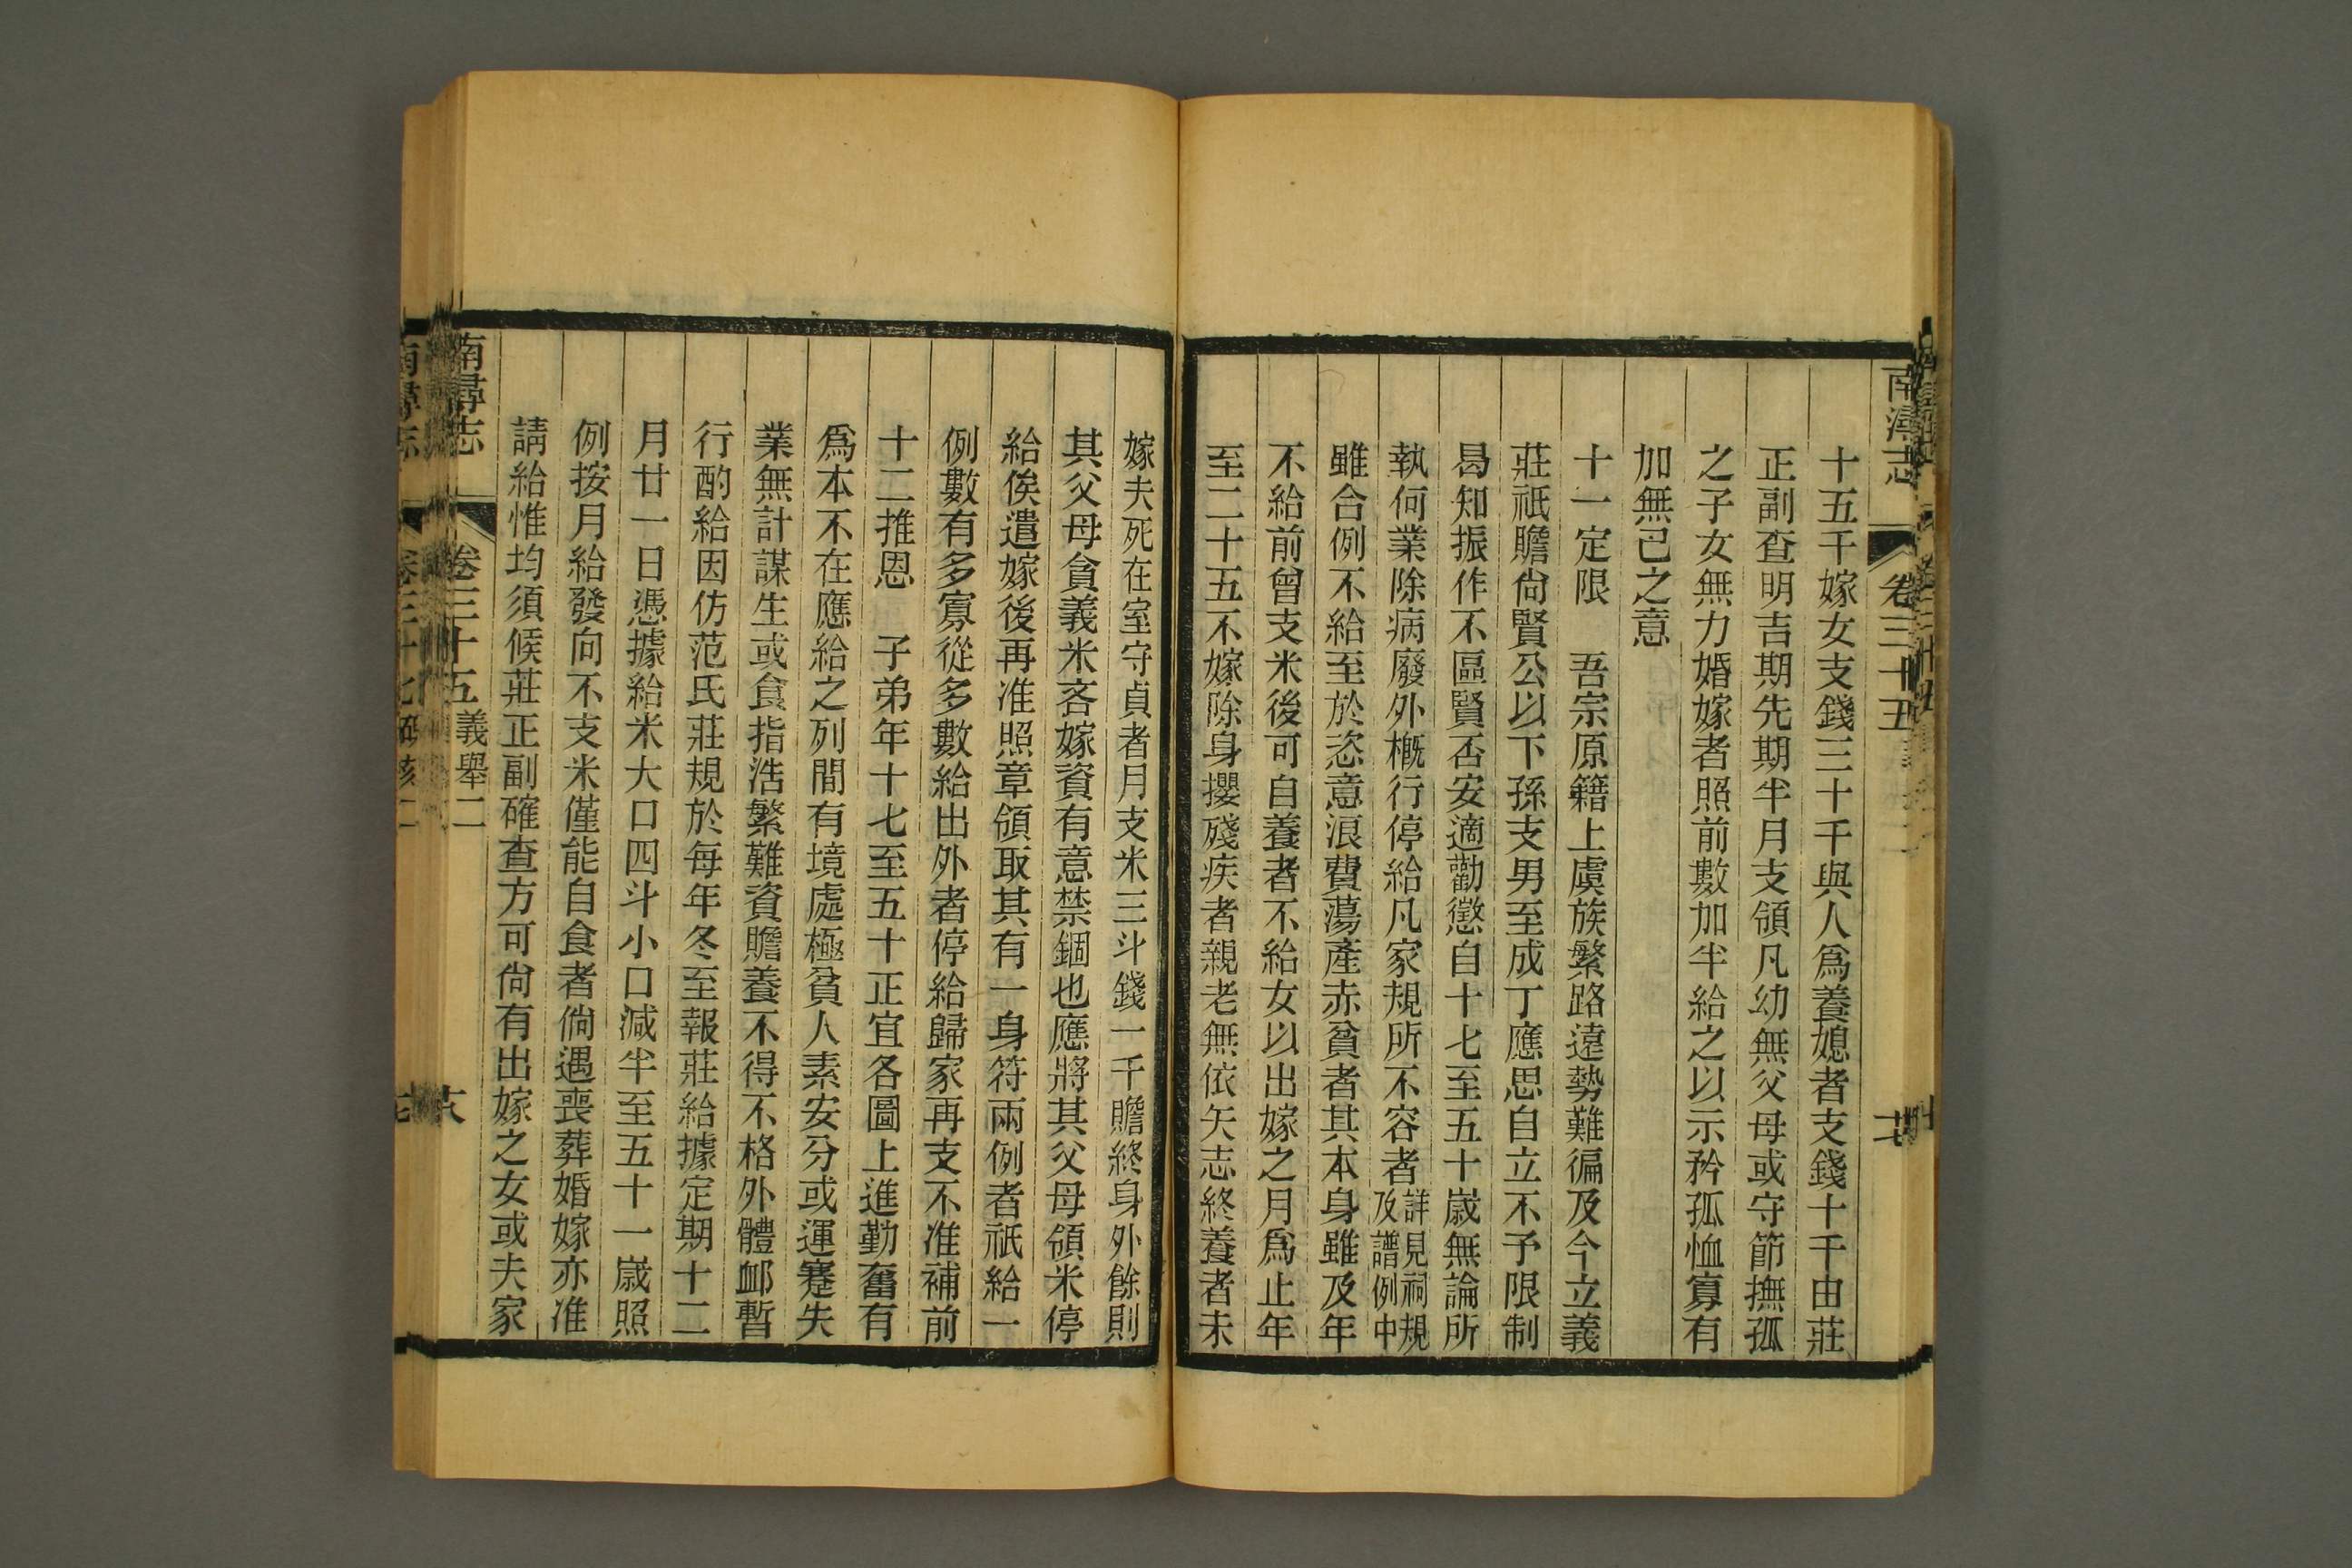 南潯志
卷三十五
十五千嫁女支錢三十千與人爲養媳者支錢十千由莊
正副查明吉期先期半月支領凡幼無父母或守節撫孤
之子女無力婚嫁者照前數加半給之以示矜孤恤寡有
加無已之意
十一定限　吾宗原籍上虞族繁路遠勢難徧及今立義
莊祇贍尙賢公以下孫支男至成丁應思自立不予限制
曷知振作不區賢否安適勸懲自十七至五十歲無論所
執何業除病廢外概行停給凡家規所不容者詳見祠規及譜例中
雖合例不給至於恣意浪費蕩產赤貧者其本身雖及年
不給前曾支米後可自養者不給女以出嫁之月爲止年
至二十五不嫁除身攖殘疾者親老無依矢志終養者未
嫁夫死在室守貞者月支米三斗錢一千贍終身外餘則
其父母貪義米吝嫁資有意禁錮也應將其父母領米停
給俟遣嫁後再准照章領取其有一身符兩例者祇給一
例數有多寡從多數給出外者停給歸家再支不准補前
十二推恩　子弟年十七至五十正宜各圖上進勤奮有
爲本不在應給之列間有境處極貧人素安分或運蹇失
業無計謀生或食指浩繁難資贍養不得不格外體卹暫
行酌給因仿范氏莊規於每年冬至報莊給據定期十二
月廿一日憑據給米大口四斗小口減半至五十一歲照
例按月給發向不支米僅能自食者倘遇喪葬婚嫁亦准
請給惟均須候莊正副確查方可尙有出嫁之女或夫家
南潯志
卷三十五
義舉二